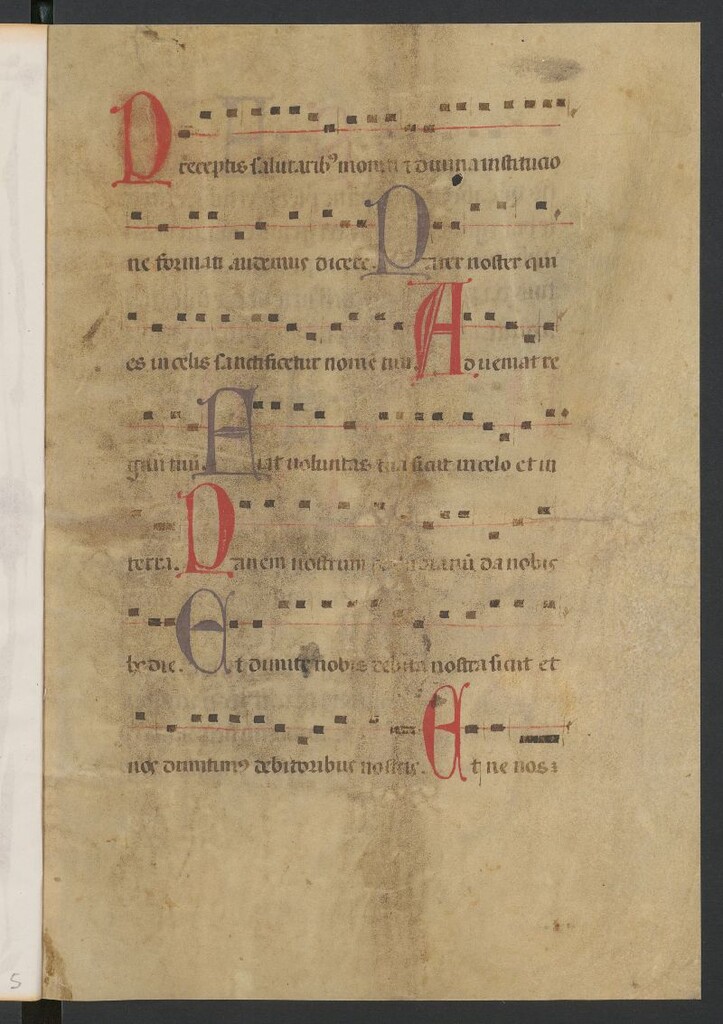 Preceptis salutarib9 moniti ⁊ diuina institucio
ne formati audemus dicere. Pater noster qui
es in celis sanctificetur nomē tuū. Adueniat re
gnū tuū. Fiat uoluntas tua sicut in celo et in
terra. Panem nostrum cotidianū da nobis
hodie. Et dimitte nobis debita nostra sicut et
nos dimittim9 debitoribus nostris. Et ne nos
5